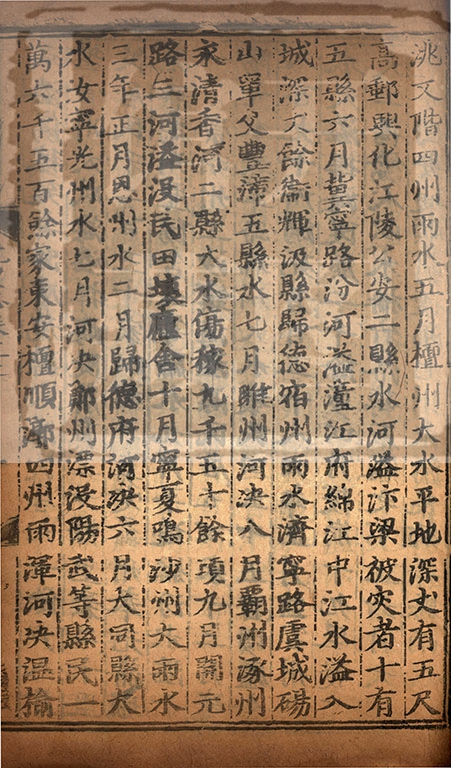 洮文階四州雨水五月檀州大水平地深丈有五尺
高郵興化江陵公安二縣水河溢汴梁被灾者十有
五縣六月冀寧路汾河溢潼江府綿江中江水溢入
城深丈餘衞輝汲縣歸德宿州雨水濟寧路虞城碭
山單父豐沛五縣水七月睢州河决八月霸州涿州
永清香河二縣大水傷稼九千五十餘頃九月開元
路三河溢没民田壞廬舍十月寧夏鳴沙州大雨水
三年正月恩州水二月歸德府河决六月大同縣大
水汝寧光州水七月河决鄭州漂没陽武等縣民一
萬六千五百餘家東安檀順漷四州雨渾河决温榆